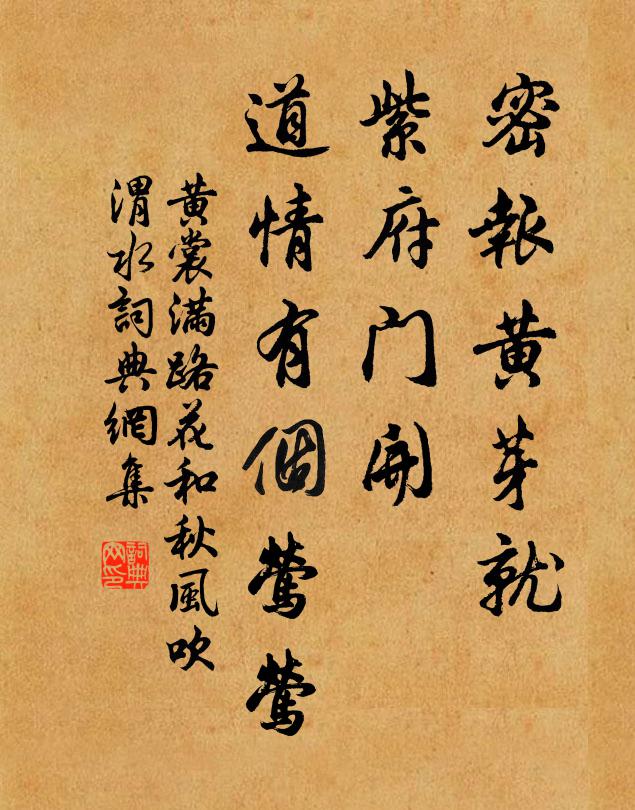 密報黃芽就
紫府門開
道情有個鶯鶯
黃裳滿路花和秋風吹
渭水詞典網集
詞典
网印